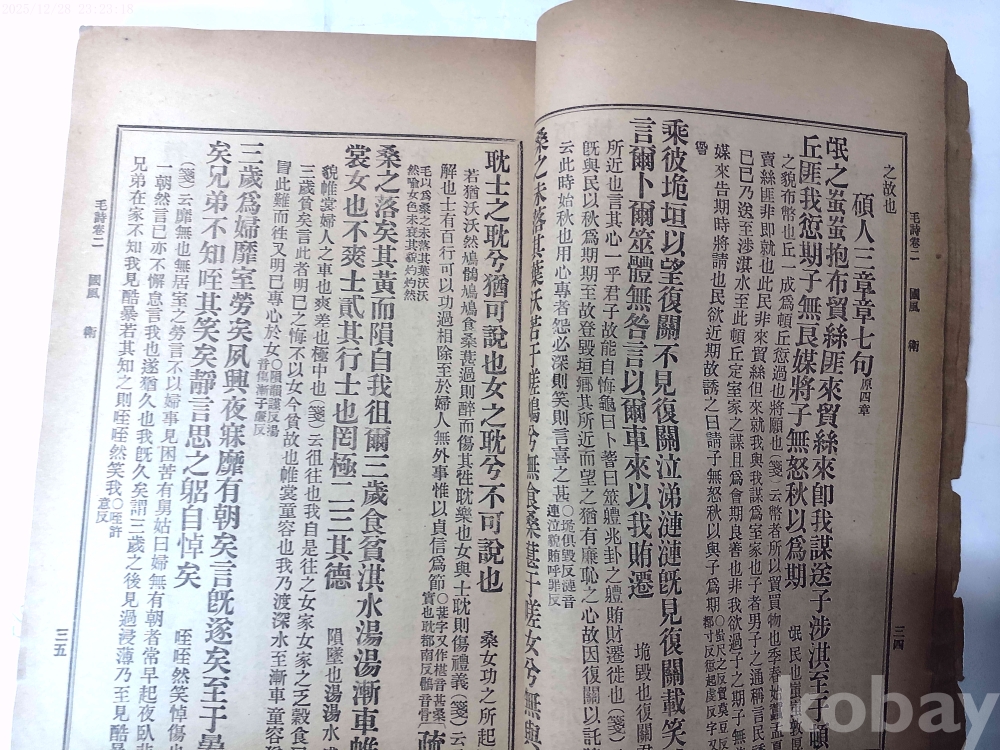 2025/12/28 23:23:18
毛詩卷二 國風 衛
三四
之故也
碩人三章章七句 原四章
氓之蚩蚩抱布貿絲匪來貿絲來卽我謀送子涉淇至于頓
丘匪我愆期子無良媒將子無怒秋以爲期 氓民也蚩蚩敦厚
之貌布幣也丘一成爲頓丘愆過也將願也(箋)云幣者所以貿買物也季春始蠶孟夏
賣絲匪非卽就也此民非來貿絲但來就我與我謀爲室家也子者男子之通稱言民
已已乃送至涉淇水至此頓丘定室家之謀且爲會期良善也非我欲過子之期子無
媒來告期時將請也民欲近期故誘之曰請子無怒秋以與子爲期 ○蚩尺之反貿莫豆反
都寸反愆起虔反字
乘彼垝垣以望復關不見復關泣涕漣漣旣見復關載笑
言爾卜爾筮體無咎言以爾車來以我賄遷 垝毀也復關君
所近也言其心一乎君子故能自悔龜曰卜蓍曰筮體兆卦之體賄財遷徙也(箋)云
旣與民以秋爲期期至故登毀垣鄉其所近而望之猶有廉恥之心故因復關以託
云此時始秋也用心專者怨必深則笑則言喜之甚 ○垝俱毀反漣音
連泣貌賄呼罪反
桑之未落其葉沃若于嗟鳩兮無食桑葚于嗟女兮無與
耽士之耽兮猶可說也女之耽兮不可說也 桑女功之所起
若猶沃沃然鳩鶻鳩食桑葚過則醉而傷其性耽樂也女與士耽則傷禮義(箋)云
解也士有百行可以功過相除至於婦人無外事惟以貞信爲節 ○葚字又作椹音甚桑
實也耽都南反鶻音骨
毛以爲桑之未落其葉沃沃
然喻女色未衰其貌灼灼然
桑之落矣其黃而隕自我徂爾三歲食貧淇水湯湯漸車帷
裳女也不爽士貳其行士也罔極二三其德 隕墮也湯湯水
貌帷裳婦人之車也爽差也極中也(箋)云徂往也我自是往之女家女家之乏穀食
三歲貧矣言此者明己之悔不以女今貧故也帷裳童容也我乃渡深水至漸車童容
冒此難而往又明己專心於女 ○隕韻謹反湯
音傷漸子廉反
三歲爲婦靡室勞矣夙興夜寐靡有朝矣言旣遂矣至于暴
矣兄弟不知咥其笑矣靜言思之躬自悼矣 咥咥然笑悼傷也
(箋)云靡無也無居室之勞言不以婦事見困苦有舅姑曰婦無有朝者常早起夜臥非
一朝然言已亦不解怠言我也遂猶久也我旣久矣謂三歲之後見過浸薄乃至見酷暴
兄弟在家不知我見酷暴若其知之則咥咥然笑我 ○咥許
意反
毛詩卷二 國風 衛
三五
kobay